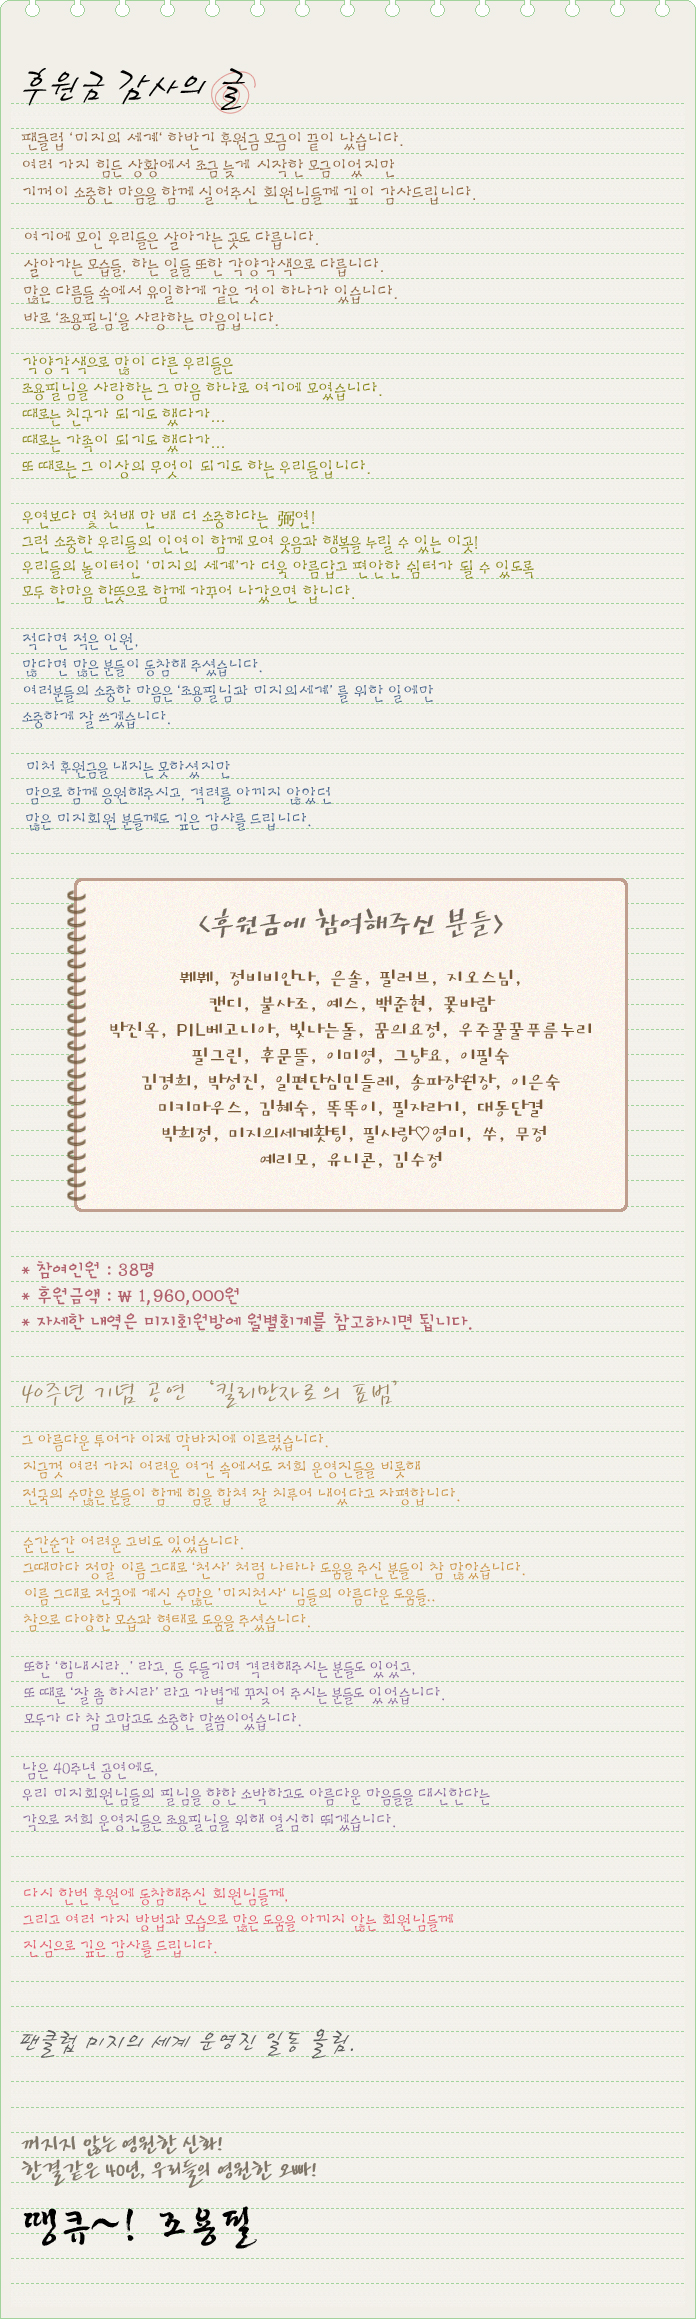 후원금 감사의 글
팬클럽 '미지의 세계' 하반기 후원금 모금이 끝이 났습니다.
여러 가지 힘든 상황에서 조금 늦게 시작한 모금이었지만
기꺼이 소중한 마음을 함께 실어주신 회원님들께 깊이 감사드립니다.
여기에 모인 우리들은 살아가는 곳도 다릅니다.
살아가는 모습들, 하는 일들 또한 각양각색으로 다릅니다.
많은 다름들 속에서 유일하게 같은 것이 하나가 있습니다.
바로 '조용필님'을 사랑하는 마음입니다.
각양각색으로 많이 다른 우리들은
조용필님을 사랑하는 그 마음 하나로 여기에 모였습니다.
때로는 친구가 되기도 했다가...
때로는 가족이 되기도 했다가...
또 때로는 그 이상의 무엇이 되기도 하는 우리들입니다.
우연보다 몇 천배 만 배 더 소중하다는 弼연!
그런 소중한 우리들의 인연이 함께 모여 웃음과 행복을 누릴 수 있는 이곳!
우리들의 놀이터인 '미지의 세계'가 더욱 아름답고 편안한 쉼터가 될 수 있도록
모두 한마음 한뜻으로 함께 가꾸어 나갔으면 합니다.
적다면 적은 인원,
많다면 많은 분들이 동참해 주셨습니다.
여러분들의 소중한 마음은 '조용필님과 미지의세계' 를 위한 일에만
소중하게 잘 쓰겠습니다.
미처 후원금을 내지는 못하셨지만
맘으로 함께 응원해주시고, 격려를 아끼지 않았던
많은 미지회원 분들께도 깊은 감사를 드립니다.
<후원금에 참여해주신 분들>
뷔뷔, 정비비안나, 은솔, 필러브, 지오스님,
캔디, 불사조, 예스, 백준현, 꽃바람
박진옥, PIL베고니아, 빛나는돌, 꿈의요정, 우주꿀꿀푸름누리
필그린, 후문뜰, 이미영, 그냥요, 이필숙
김경희, 박성진, 일편단심민들레, 송파장원장, 이은숙
미키마우스, 김혜숙, 똑똑이, 필자라기, 대동단결
박희정, 미지의세계홧팅, 필사랑♡영미, 쑤, 무정
예리모, 유니콘, 김수정
* 참여인원 : 38명
* 후원금액 : ₩ 1,960,000원
* 자세한 내역은 미지회원방에 월별회계를 참고하시면 됩니다.
40주년 기념 공연 '킬리만자로의 표범'
그 아름다운 투어가 이제 막바지에 이르렀습니다.
지금껏 여러 가지 어려운 여건 속에서도 저희 운영진들을 비롯해
전국의 수많은 분들이 함께 힘을 합쳐 잘 치루어 내었다고 자평합니다.
순간순간 어려운 고비도 있었습니다.
그때마다 정말 이름 그대로 '천사' 처럼 나타나 도움을 주신 분들이 참 많았습니다.
이름 그대로 전국에 계신 수많은 '미지천사' 님들의 아름다운 도움들..
참으로 다양한 모습과 형태로 도움을 주셨습니다.
또한 '힘내시라..' 라고, 등 두들기며 격려해주시는 분들도 있었고,
또 때론 '잘 좀 하시라' 라고 가볍게 꾸짖어 주시는 분들도 있었습니다.
모두가 다 참 고맙고도 소중한 말씀이었습니다.
남은 40주년 공연에도,
우리 미지회원님들의 필님을 향한 소박하고도 아름다운 마음들을 대신한다는
각오로 저희 운영진들은 조용필님을 위해 열심히 뛰겠습니다.
다시 한번 후원에 동참해주신 회원님들께,
그리고 여러 가지 방법과 모습으로 많은 도움을 아끼지 않는 회원님들께
진심으로 깊은 감사를 드립니다.
팬클럽 미지의 세계 운영진 일동 올림.
꺼지지 않는 영원한 신화!
한결같은 40년, 우리들의 영원한 오빠!
땡큐~! 조용필